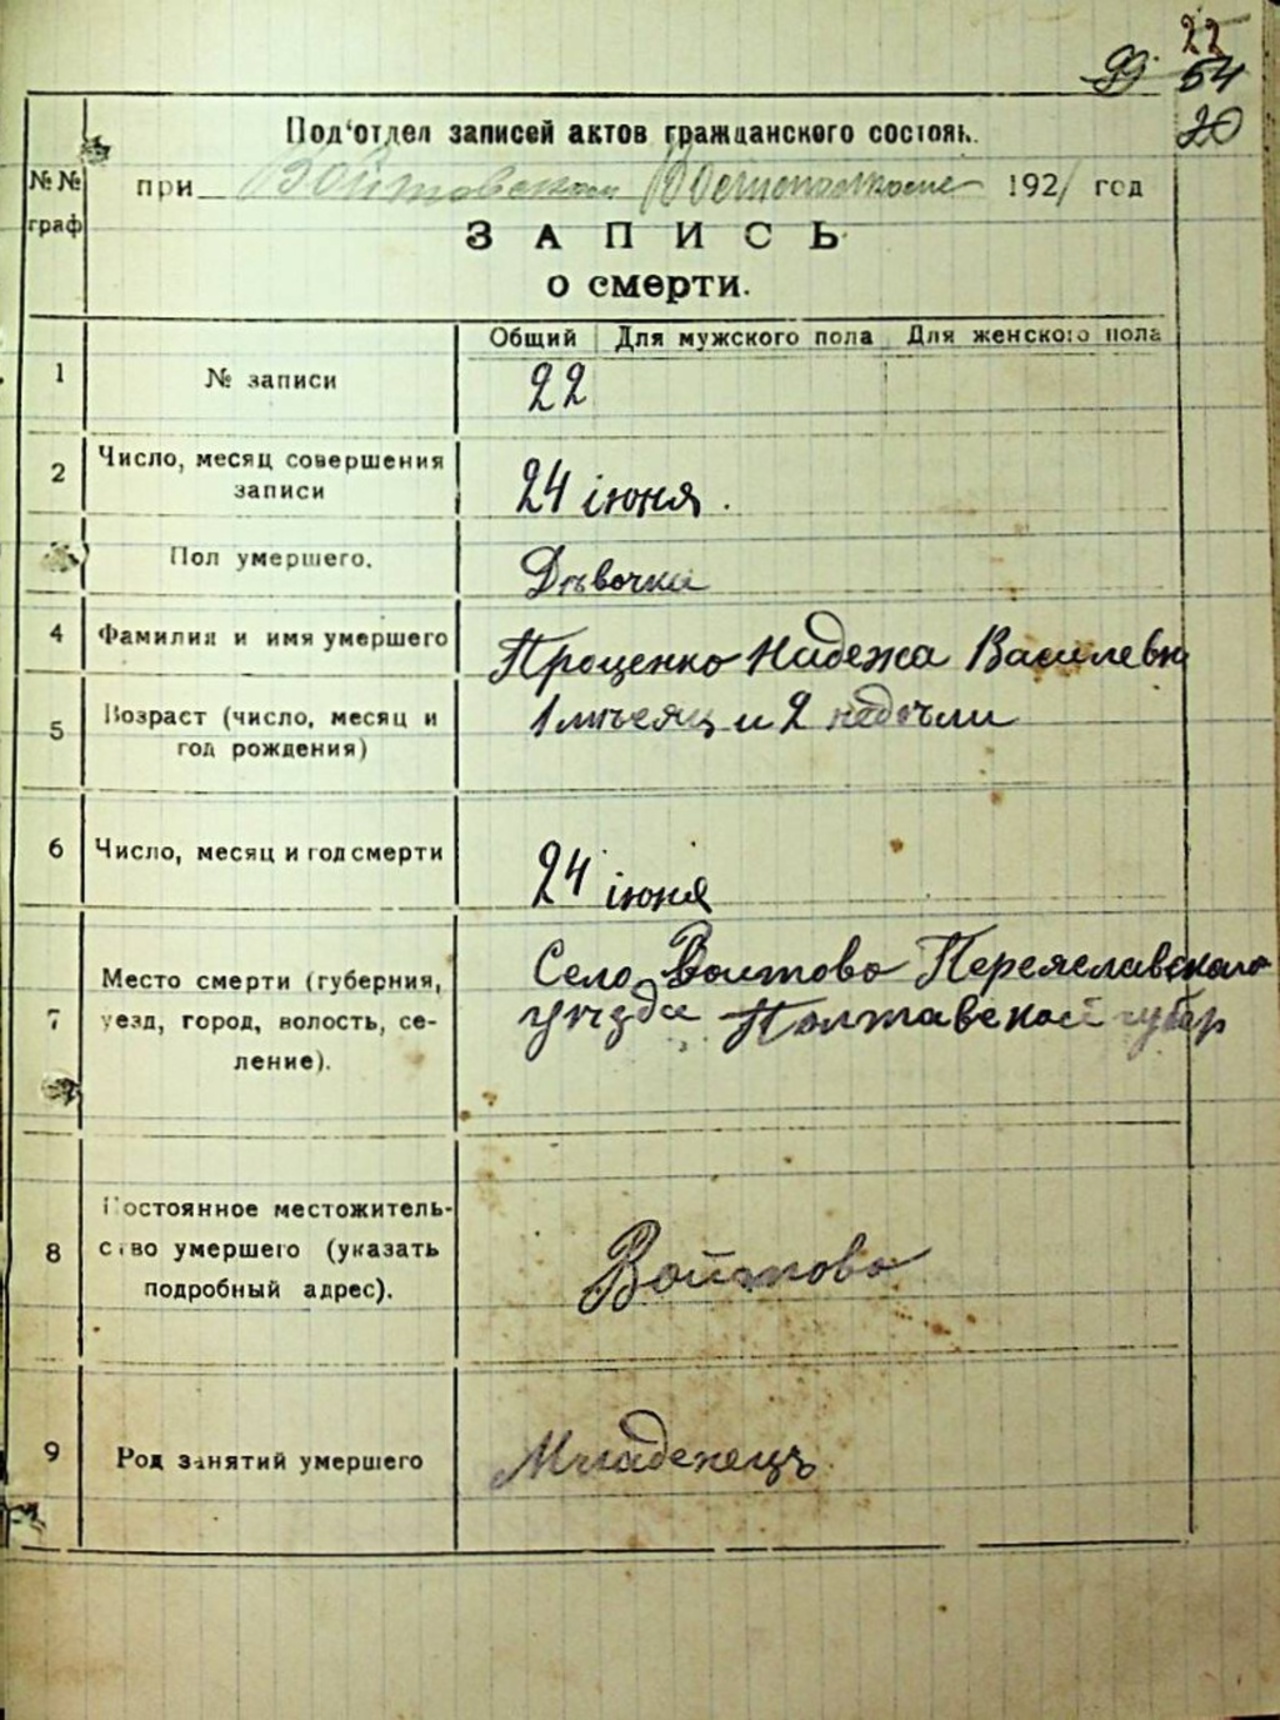 22
99 54
20
Под'отдел записей актов гражданского состоян.
при Войтовском Волисполкоме 1921 год
№№ граф
ЗАПИСЬ
о смерти.
Общий Для мужского пола Для женского пола
1 № записи 22
2 Число, месяц совершения
записи
24 іюня.
Пол умершего. Дѣвочка
4 Фамилия и имя умершего Проценко Надежа Василевн
5 Возраст (число, месяц и
год рождения)
1 мѣсяц и 2 недѣли
6 Число, месяц и год смерти 24 іюня
7 Место смерти (губерния,
уезд, город, волость, се-
ление).
Село Воитово Переяславского
уѣзда Полтавской губер
8 Постоянное местожитель-
ство умершего (указать
подробный адрес).
Войтово
9 Род занятий умершего Младенецъ